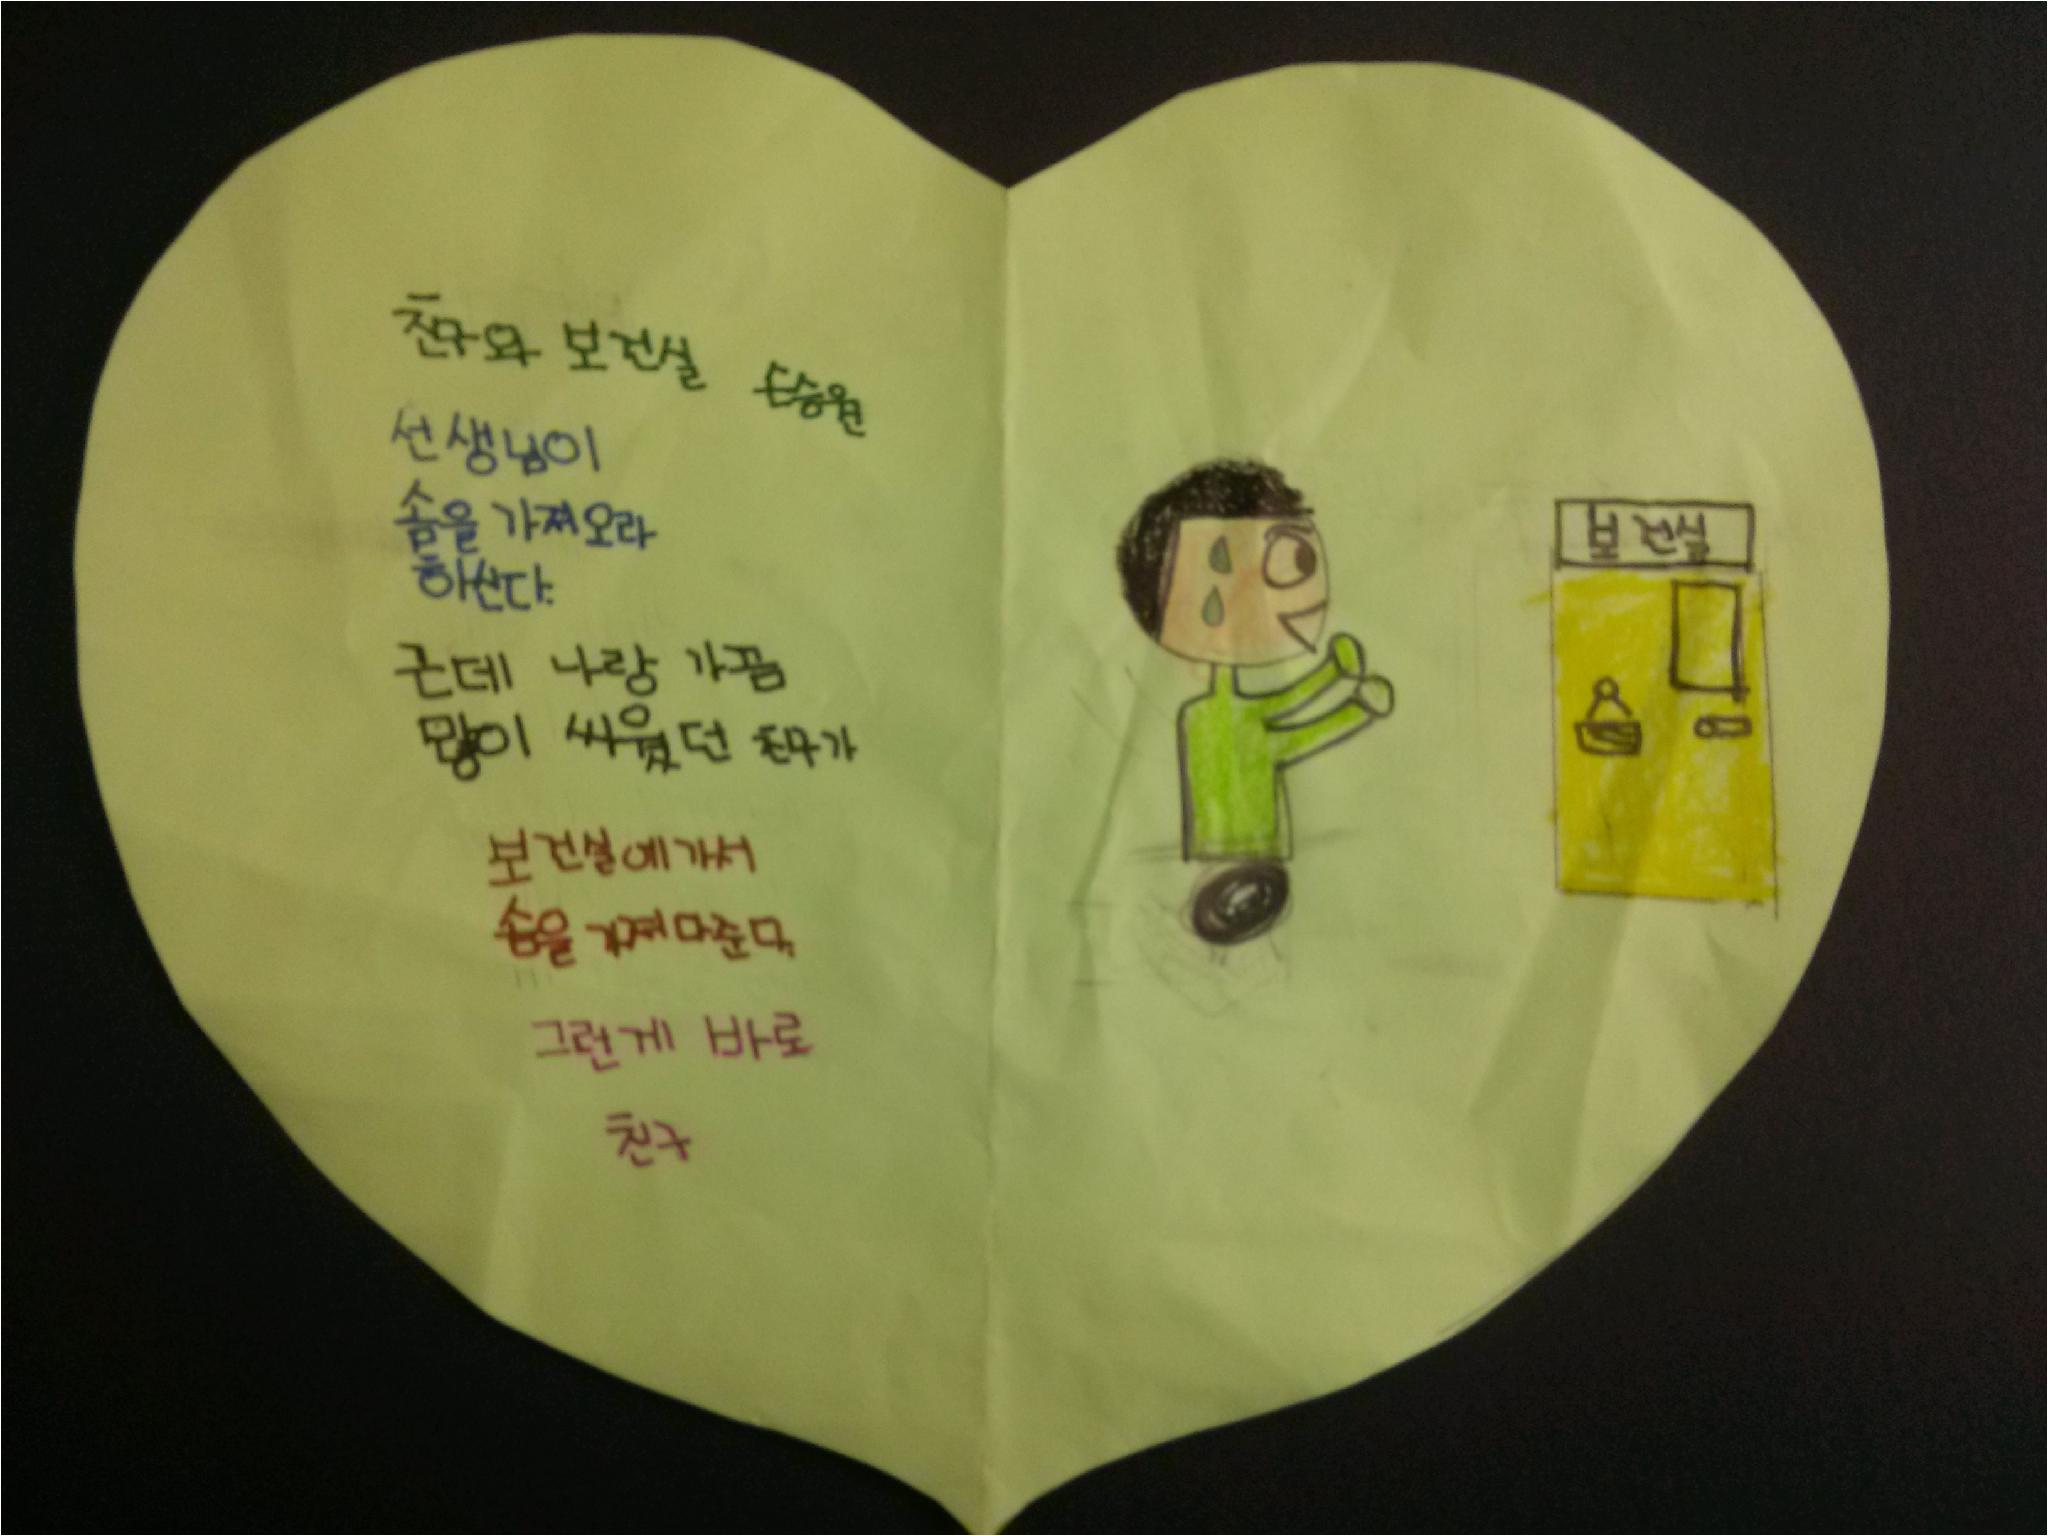 친구와 보건실 손승원
선생님이
솜을 가져오라
하신다.
근데 나랑 가끔
많이 싸웠던 친구가
보건실에가서
솜을 가져다준다.
그런게 바로
친구
보건실